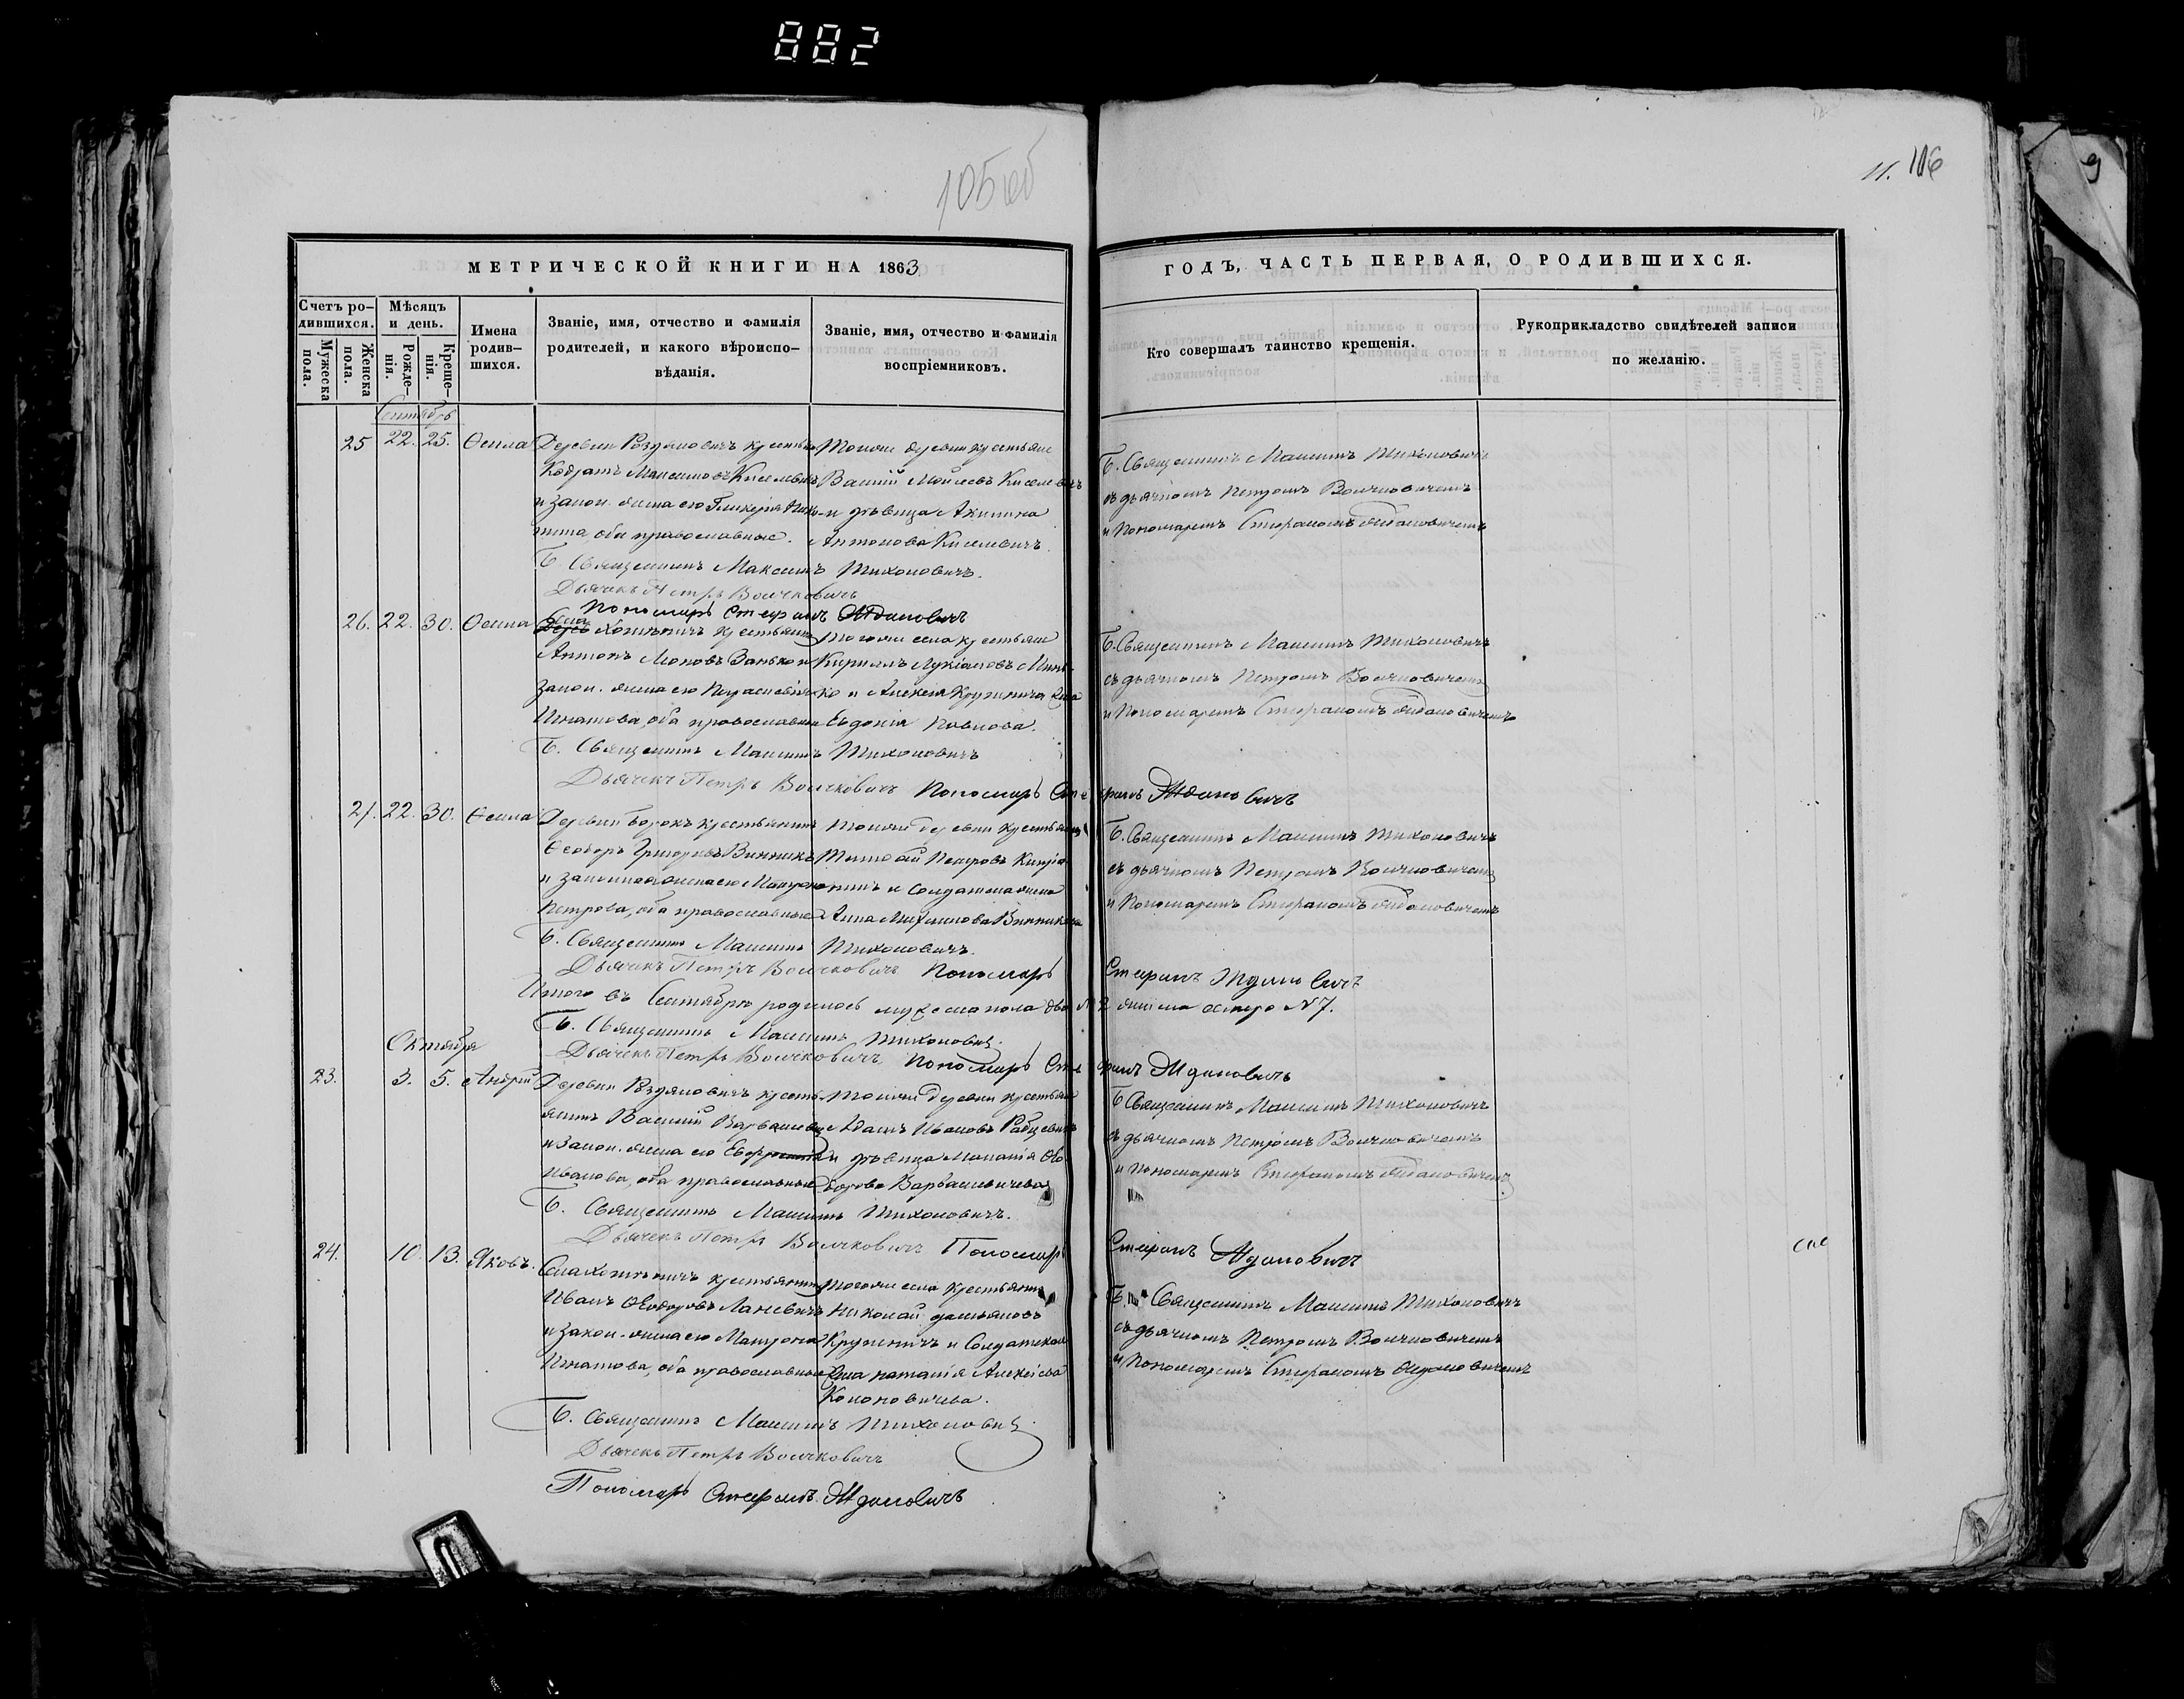 882
105 об
11. 106
МЕТРИЧЕСКОЙ КНИГИ НА 1863
ГОДЪ, ЧАСТЬ ПЕРВАЯ, О РОДИВШИХСЯ.
Счетъ ро-
дившихся.
Мужеска
пола.
Женска
пола.
Мѣсяцъ
и день.
Рожде-
нія.
Креще-
нія.
Имена
родив-
шихся.
Званіе, имя, отчество и фамилія
родителей, и какого вѣроиспо-
вѣданія.
Званіе, имя, отчество и фамилія
воспріемниковъ.
Кто совершалъ таинство крещенія.
Рукоприкладство свидѣтелей записи
по желанію.
Сентябрь
25 22. 25. Ѳекла
Деревни Роздяловичъ крестья
Кодратъ Максимовъ Киселевичъ
и закон. жена его Гликерія Ники-
тина, оба православные.
Тойже деревни крестьяне
Василій Мойсеевъ Киселевичъ
и дѣвица Акилина
Антонова Киселевичъ
Б. Священникъ Максимъ Тихоновичъ
съ дьячкомъ Петромъ Волчковичемъ
и Пономаремъ Стефаномъ Ждановичемъ
Б. Священникъ Максимъ Тихоновичъ.
Дьячекъ Петръ Волчковичъ
Пономарь Стефанъ Ждановичъ
26. 22. 30. Ѳекла
Села Хотыничъ крестьянинъ
Антонъ Леоновъ Занько и
закон. жена его Параскевія
Игнатова, оба православные
Тогоже села крестьяне
Кирилъ Лукіановъ
и Алексія Кружнича жена
Евдокія Павлова.
Б. Священникъ Максимъ Тихоновичъ
съ дьячкомъ Петромъ Волчковичемъ
и Пономаремъ Стефаномъ Ждановичемъ
Б. Священникъ Максимъ Тихоновичъ
Дьячекъ Петръ Волчковичъ Пономарь Стефанъ Ждановичъ
27. 22. 30. Ѳекла
Деревни Борокъ крестьянинъ
Ѳеодоръ Григорьевъ Винникъ
и законная жена его Матрона
Петрова, оба православные
Тойже деревни крестьянинъ
Тимоѳей Петровъ
и Солдатка жена
Анна Михаилова Винникова
Б. Священникъ Максимъ Тихоновичъ
съ дьячкомъ Петромъ Волчковичемъ
и Пономаремъ Стефаномъ Ждановичемъ
Б. Священникъ Максимъ Тихоновичъ.
Дьячекъ Петръ Волчковичъ Пономарь Стефанъ Ждановичъ
Итого въ Сентябрѣ родилось мужеска пола два № 2 женска семеро № 7.
Б. Священникъ Максимъ Тихоновичъ.
Дьячекъ Петръ Волчковичъ. Пономарь Стефанъ Ждановичъ
Октября
23. 3. 5. Андрей
Деревни Роздяловичъ кресть
янинъ Василій Варвашевичъ
и закон. жена его
Иванова, оба православные
Тойже деревни крестьяне
Адамъ Ивановъ Рабцевичъ
и дѣвица Меланія Ѳео-
дорова Варвашевичева
Б. Священникъ Максимъ Тихоновичъ
съ дьячкомъ Петромъ Волчковичемъ
и Пономаремъ Стефаномъ Ждановичемъ
Б. Священникъ Максимъ Тихоновичъ.
Дьячекъ Петръ Волчковичъ Пономарь Стефанъ Ждановичъ
24. 10. 13. Яковъ.
Села Хотыничъ крестьянинъ
Иванъ Ѳеодоровъ Ланевичъ
и закон. жена его Матрона
Игнатова, оба православные
Тогоже села крестьянинъ
Николай Демьяновъ
Кружничъ и Солдатская
жена Наталія Алексіева
Кононовичева.
Б. Священникъ Максимъ Тихоновичъ
съ дьячкомъ Петромъ Волчковичемъ
и Пономаремъ Стефаномъ Ждановичемъ
Б. Священникъ Максимъ Тихоновичъ.
Дьячекъ Петръ Волчковичъ
Пономарь Стефанъ Ждановичъ